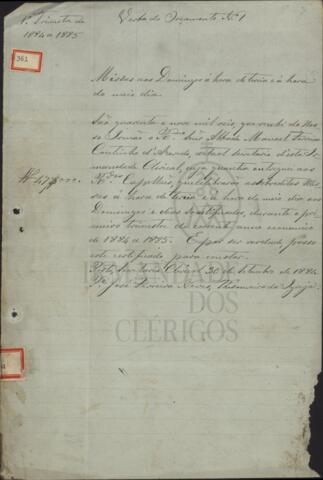 1º Trimestre de
1884 a 1885
Verba do Orçamento Nº 1
361
Missas aos Domingos á hora de tercia e á hora
do meio dia.
São quarenta e nove mil reis, que recebi do Nos
so Irmão o Rº Snr Abbade Manoel
Coutinho d'Azevedo, actual secretario d'esta Ir
mandade Clerical, cuja quantia entreguei aos
Rdos Capellães, que celebraram as Missas
á hora de tercia e á hora do meio dia aos
Domingos e dias sanctificados, durante o pri
meiro trimestre do corrente anno economico
de 1884 a 1885. E por ser verdade passo
este certificado para constar.
Porto, Secretaria Clerical 30 de Setembro de 1884
Pe José Ferreira Thesoureiro da Igreja
IRMANDADE
DOS
CLÉRIGOS